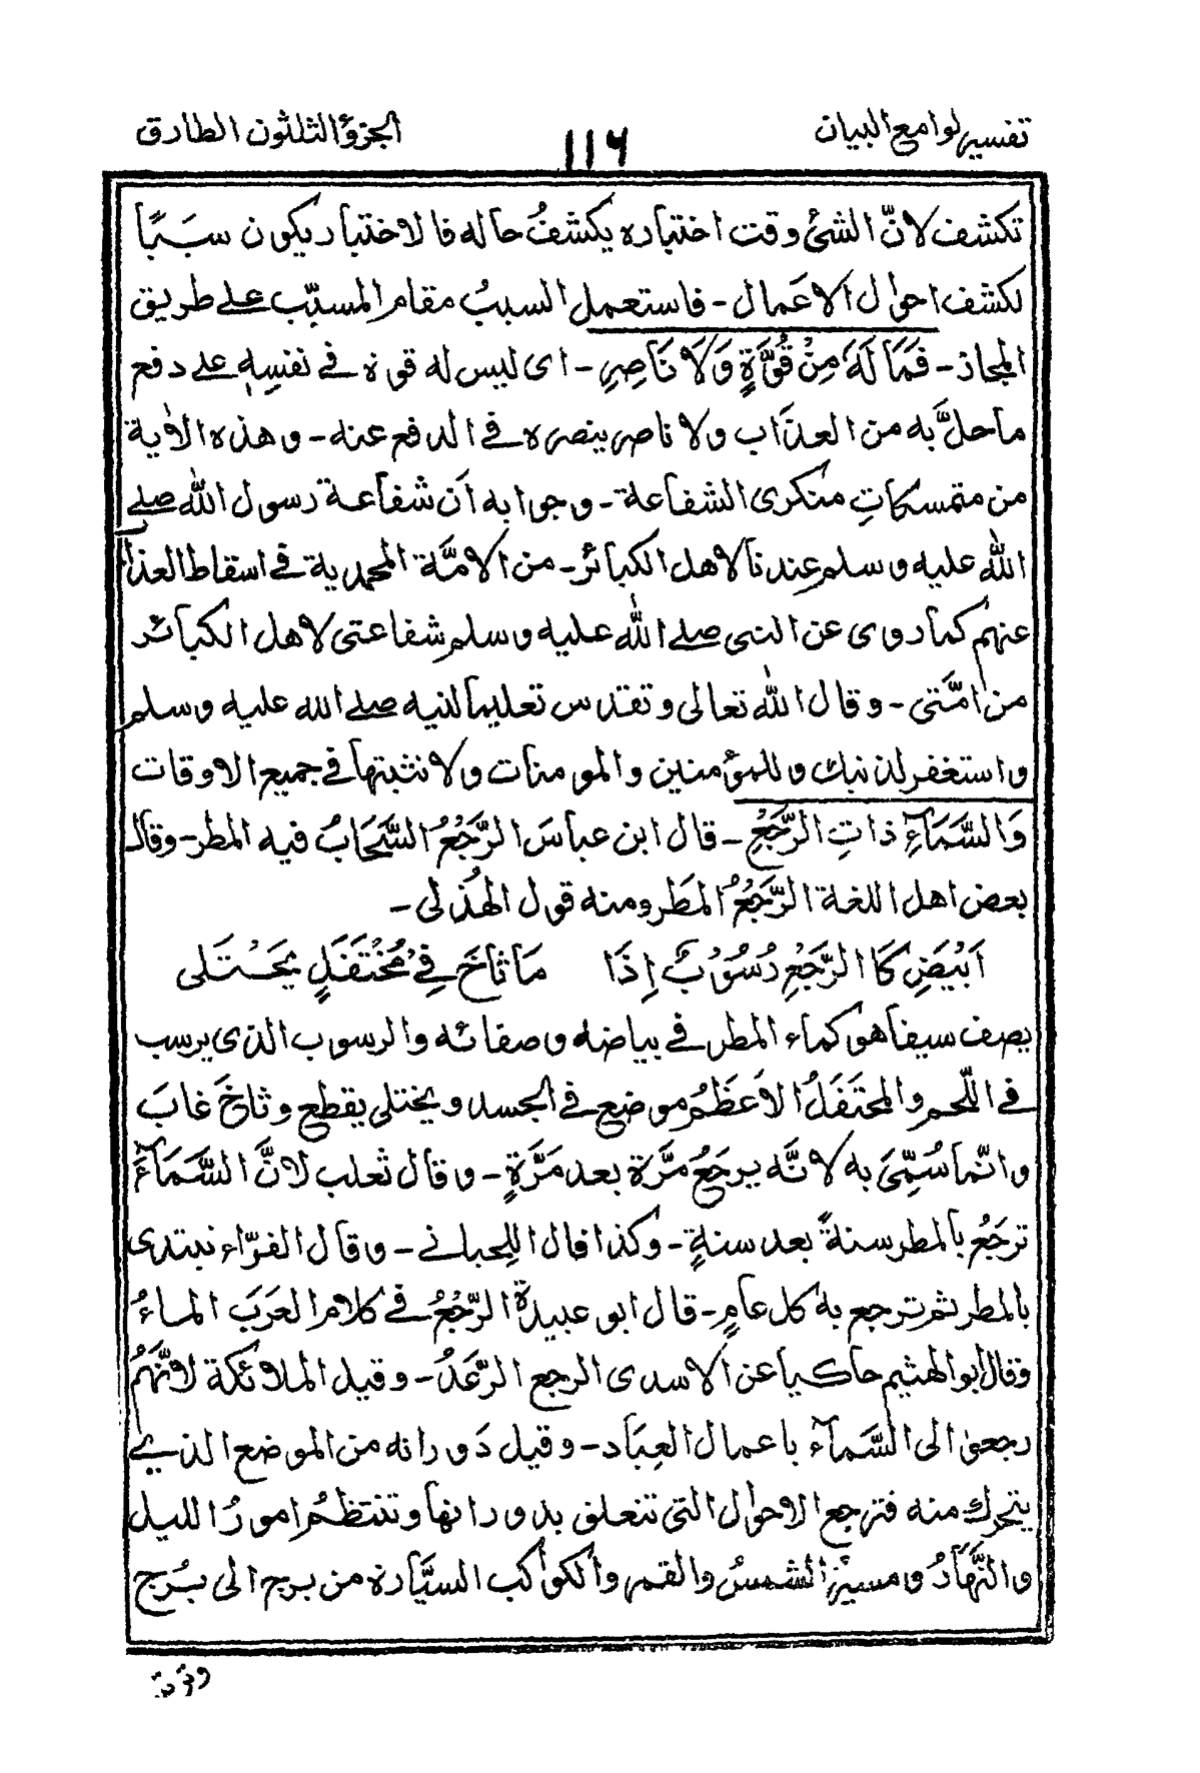 تفسير لوامع البيان
١١٦
الجزؤ الثلثون الطارق
تكشف لانّ الشئ وقت اختباره يكشفُ حاله فالاختبار يكون سَبَبًا
لكشف احوال الاَعمال - فاستعمل السببُ مقام المسبّب على طريق
المجاز - فَمَا لَهٗ مِنْ قُوَّةٍ وَلَا نَاصِرٍ - اى ليس له قوة فى نفسِهٖ على دفع
ما حلَّ به من العذاب ولا ناصر ينصره فى الدفع عنه - وهذه الاٰية
من متمسكاتِ منكرى الشفاعة - وجوابه اَن شفاعة رسول الله صلى
الله عليه وسلم عندنا لاهل الكبائر - من الامَّة المحمدية فى اسقاط العذاب
عنهم كما روى عن النبى صلى الله عليه وسلم شفاعتى لاهل الكبائر
من امَّتى - وقال الله تعالى وتقدس تعليما لنبيه صلى الله عليه وسلم
واستغفر لذنبك وللمؤمنين والمومنات ولا نثبتها فى جميع الاوقات
وَالسَّمَآءِ ذاتِ الرَّجْعِ - قال ابن عباسَ الرَّجْعُ السَّحَابُ فيه المطر - وقال
بعض اهل اللغة الرَّجْعُ المَطَر ومنه قول الهُذلى -
اَبْيَضِ كَا الرَّجْعِ رُسُوْبٌ اِذَا مَا ثَاخَ فِىْ مُحْتَفَلٍ يَخْتَلى
يصف سيفا هو كماء المطر فى بياضه وصفائه والرسوب الذى يرسب
فى اللّحم والمحتَفَلُ الاَعظَمُ موضع فى الجسد ويختلى يقطع وثاخَ غابَ
وانّما سُمِّىَ به لانَّه يرجَعُ مرَّة بعد مَرَّةٍ - وقال ثعلب لانَّ السَّمَآءَ
ترجَعُ بالمطر سنةً بعد سنةٍ - وكذا قال اللِحيانى - وقال الفرّاء تبتدى
بالمطر ثم ترجع به كل عامٍ - قال ابو عبيدة الرّجْعُ فى كلام العَرَبَ الماءُ
وقال ابو الهثيم حاكيا عن الاسدى الرجع الرَّعَدُ - وقيل الملائكة لانَّهُمُ
رجعوا الى السَّمآء باعمال العِباد - وقيل دَورانه من الموضع الذى
يتحرك منه فترجع الاحوال التى تتعلق بدورانها وتنتظمُ امورُ الليل
والنَّهَارُ ومسيرُ الشمسُ والقمر والكواكب السيَّارة من برج الى بُرج